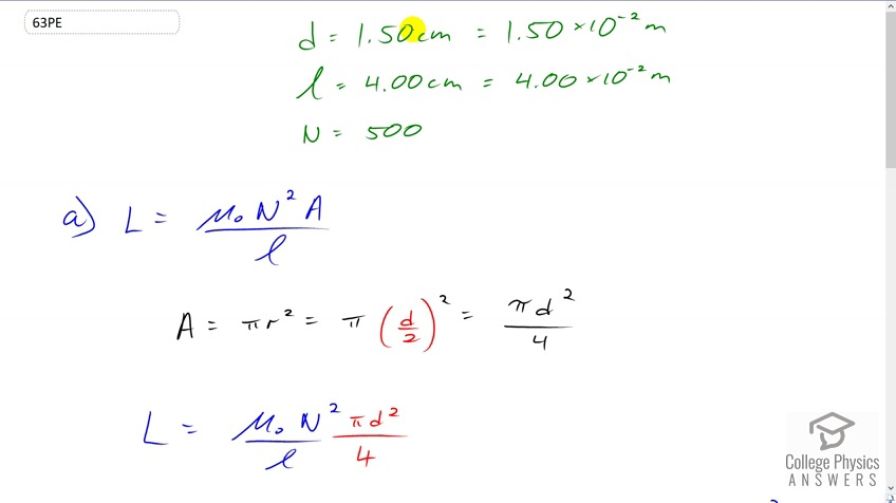 63PE
d = 1.50cm = 1.50 × 10⁻² m
l = 4.00cm = 4.00 × 10⁻² m
N = 500
a) L = μ₀ N² A / l
A = πr² = π (d/2)² = πd² / 4
L = μ₀ N² / l πd² / 4
College Physics
ANSWERS